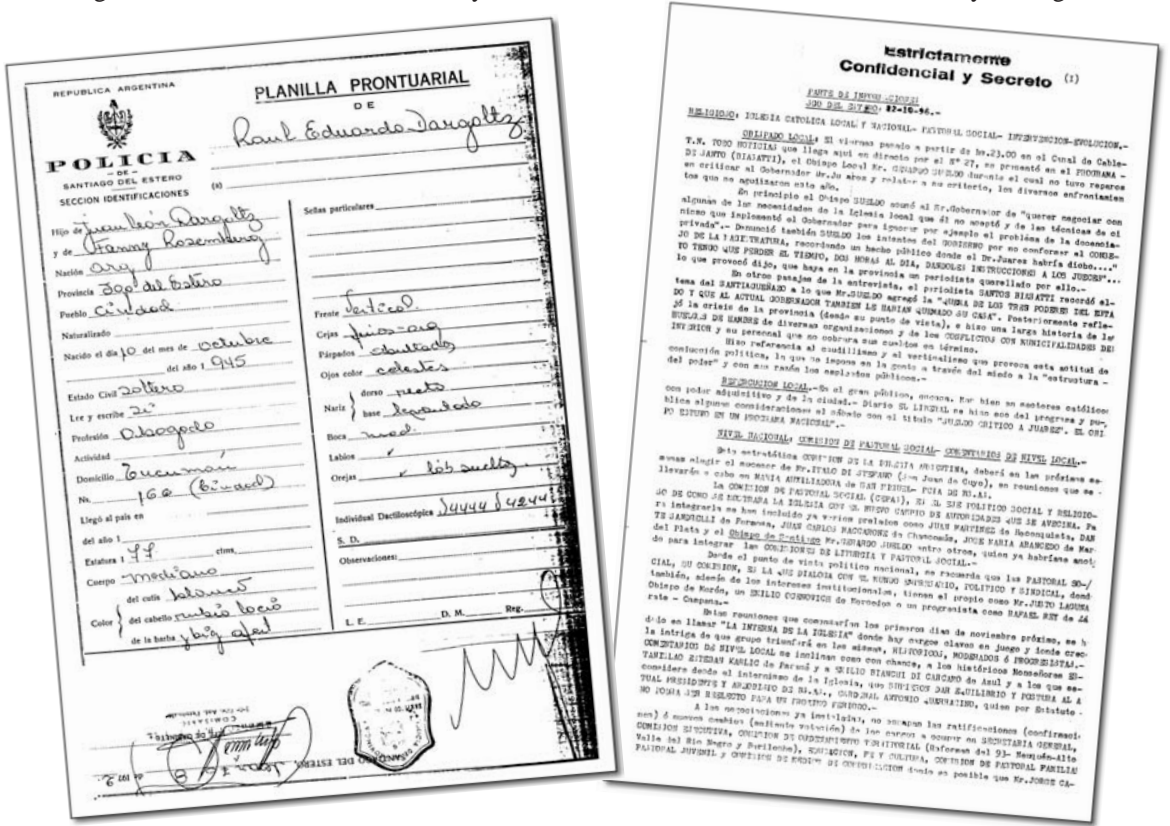 REPUBLICA ARGENTINA
POLICIA
— DE —
SANTIAGO DEL ESTERO
SECCION IDENTIFICACIONES
PLANILLA PRONTUARIAL
DE
Raul Eduardo Dargoltz
(a)
Hijo de Juan León Dargoltz
y de Fanny Rosemberg
Nación arg
Provincia Sgo del Estero
Pueblo Ciudad
Naturalizado
Nacido el día 10 del mes de octubre
del año 1 945
Estado Civil Soltero
Lee y escribe Si
Profesión Abogado
Actividad
Domicilio Tucumán
No. 166 (Ciudad)
Llegó al país en
del año 1
Estatura 1 77 ctms.
Cuerpo mediano
Color del cutis blanco
del cabello rubio
de la barba
Señas particulares
Frente Vertical
Cejas
Párpados abultados
Ojos color celestes
Nariz dorso recto
base
Boca med.
Labios
Orejas lób suelto
Individual Dactiloscópica
S. D.
Observaciones:
L. E. D. M. Reg.
SANTIAGO DEL ESTERO,
Estrictamente
Confidencial y Secreto (1)
PARTE DE INFORMACIONES
SGO DEL ESTERO: 22-10-96.-
RELIGIOSO: IGLESIA CATOLICA LOCAL Y NACIONAL- PASTORAL SOCIAL- INTERVENCION-EVOLUCION.-
OBISPADO LOCAL: El viernes pasado a partir de hs.23.00 en el Canal de Cable-
T.N. TODO NOTICIAS que llega aquí en directo por el N° 27, se presentó en el PROGRAMA -
DE SANTO (BIASATTI), el Obispo Local Mr. GERARDO SUELDO durante el cual no tuvo reparos
en criticar al Gobernador Dr. Juarez y relatar a su criterio, los diversos enfrentamien
tos que se agudizaron este año.
En principio el Obispo SUELDO acusó al Sr.Gobernador de "querer negociar con
algunas de las necesidades de la Iglesia local que él no aceptó y de las técnicas de ci
nismo que implementó el Gobernador para ignorar por ejemplo el problema de la docencia-
privada".- Denunció también SUELDO los intentos del GOBIERNO por no conformar el CONSE-
JO DE LA MAGISTRATURA, recordando un hecho público donde el Dr.Juarez habría dicho...."
YO TENGO QUE PERDER EL TIEMPO, DOS HORAS AL DIA, DANDOLES INSTRUCCIONES A LOS JUECES"...
lo que provocó dijo, que haya en la provincia un periodista querellado por ello.-
En otros pasajes de la entrevista, el periodista SANTOS BIASATTI recordó el-
tema del SANTIAGUEÑAZO a lo que Mr.SUELDO agregó la "QUEMA DE LOS TRES PODERES DEL ESTA
DO Y QUE AL ACTUAL GOBERNADOR TAMBIEN LE HABIAN QUEMADO SU CASA". Posteriormente refle-
jó la crisis de la provincia (desde su punto de vista), e hizo una larga historia de las
HUELGAS DE HAMBRE de diversas organizaciones y de los CONFLICTOS CON MUNICIPALIDADES DEL
INTERIOR y su personal que no cobrara sus sueldos en término.
Hizo referencia al caudillismo y el verticalismo que provoca esta actitud de
conducción política, la que se impone en la gente a través del miedo a la "estructura -
del poder" y con más razón los empleados públicos.-
REPERCUSION LOCAL.-En el gran público, escasa. Mas bien en sectores católicos
con poder adquisitivo y de la ciudad.- Diario EL LIBERAL se hizo eco del programa y pu-
blica algunas consideraciones el sábado con el título "SUELDO CRITICO A JUAREZ". EL OBI
PO ESTUVO EN UN PROGRAMA NACIONAL".-
NIVEL NACIONAL: COMISION DE PASTORAL SOCIAL- COMENTARIOS DE NIVEL LOCAL.-
Esta estratégica COMISION DE LA IGLESIA ARGENTINA, deberá en las próximas se-
manas elegir el sucesor de Mr.ITALO DI STEFANO (San Juan de Cuyo), en reuniones que se -
llevarán a cabo en MARIA AUXILIADORA de SAN MIGUEL- PCIA DE BS.AS.
La COMISION DE PASTORAL SOCIAL (CEPAS), ES EL EJE POLITICO SOCIAL Y RELIGIO-
SO DE COMO SE MOSTRARA LA IGLESIA CON EL NUEVO CAMBIO DE AUTORIDADES QUE SE AVECINA. Pa
ra integrarla se han incluido ya varios prelados como JUAN MARTINEZ de Reconquista, DAN
TE SANDRELLI de Formosa, JUAN CARLOS MACCARONE de Chascomús, JOSE MARIA ARANCEDO de Mar-
del Plata y el Obispo de Santiago Mr.GERARDO SUELDO entre otros, quien ya habríase anot
do para integrar las COMISIONES DE LITURGIA Y PASTORAL SOCIAL.-
Desde el punto de vista político nacional, se recuerda que las PASTORAL SO-/
CIAL, SU COMISION, ES LA QUE DIALOGA CON EL MUNDO EMPRESARIO, POLITICO Y SINDICAL, dond
también, además de los intereses institucionales, tienen el propio como Mr.JUSTO LAGUNA
Obispo de Morón, un EMILIO OGÑENOVICH de Mercedes o un progresista como RAFAEL REY de
rate - Campana.-
Estas reuniones que comenzarían los primeros días de noviembre próximo, se h
dado en llamar "LA INTERNA DE LA IGLESIA" donde hay cargos claves en juego y donde crec
la intriga de que grupo triunfará en las mismas, HISTORICOS, MODERADOS ó PROGRESISTAS.-
COMENTARIOS DE NIVEL LOCAL se inclinan como con chance, a los históricos Monseñores ES-
TANISLAO ESTEBAN KARLIC de Paraná y a EMILIO BIANCHI DI CARCANO de Azul y a los que se-
considera desde el internismo de la Iglesia, que SUPIERON DAR EQUILIBRIO Y POSTURA AL A
TUAL PRESIDENTE Y ARZOBISPO DE BS.AS., CARDENAL ANTONIO QUARRACINO, quien por Estatuto -
NO PODRA SER REELECTO PARA UN PROXIMO PERIODO.-
A las negociaciones ya instaladas, no escapan las ratificaciones (confirmaci
nes) ó nuevos cambios (mediante votación) de los cargos a ocupar en SECRETARIA GENERAL,
COMISION EJECUTIVA, COMISION DE ORDENAMIENTO TERRITORIAL (Reformas del 93- Neuquén-Alto
Valle del Rio Negro y Bariloche), EDUCACION, FE Y CULTURA, COMISION DE PASTORAL FAMILIA
PASTORAL JUVENIL y COMISION DE MEDIOS DE COMUNICACION donde es posible que Mr.JORGE CA-